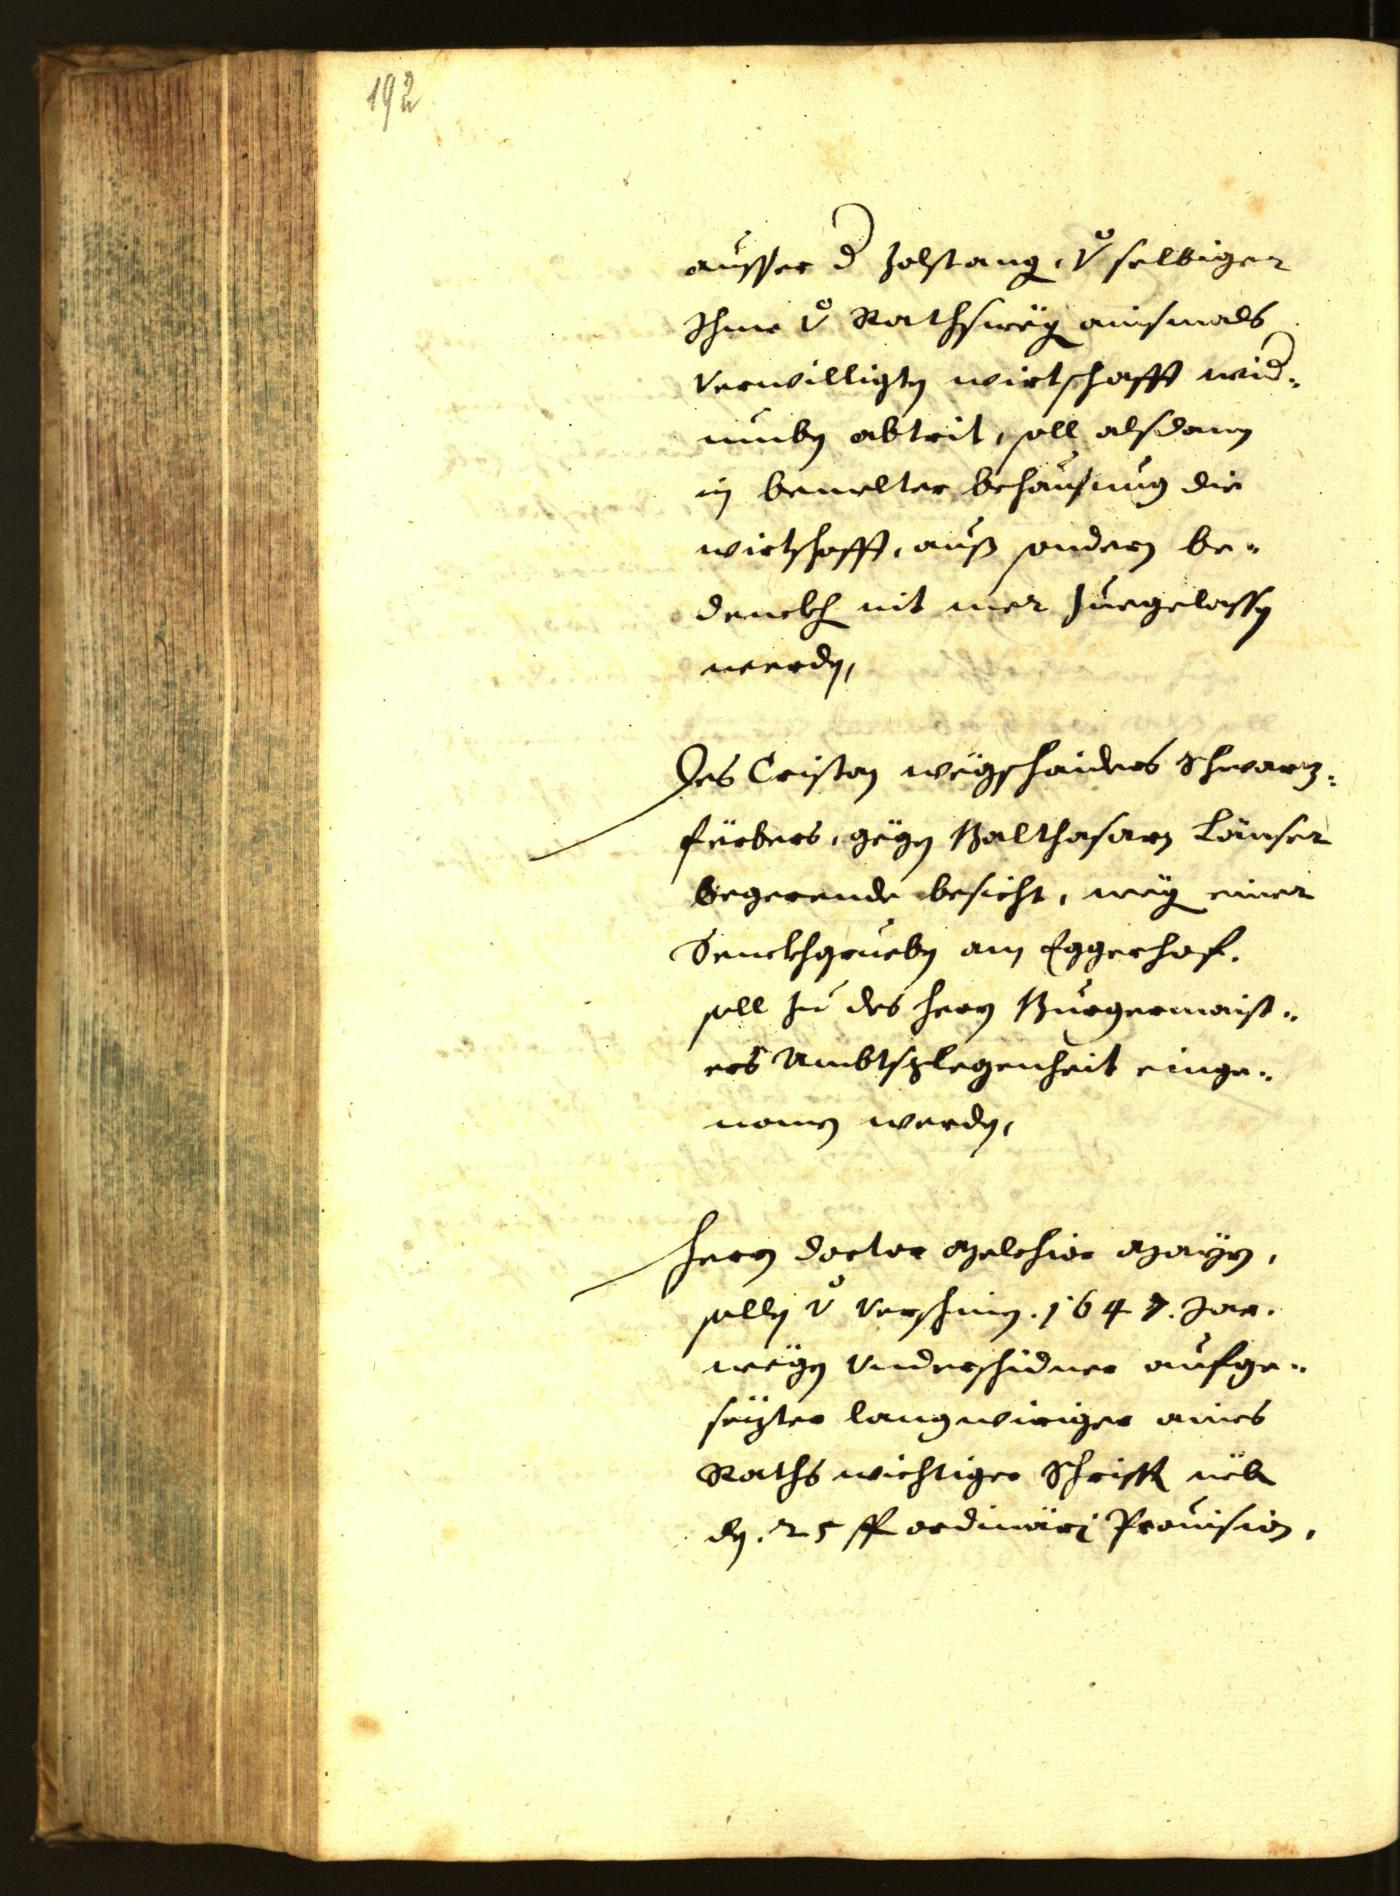 192
ausser d Zolstang, v̊ selbiger
Ihme v̊ Rathsweg ainsmals
Verwilligtn wirtschafft wid„
mueben abtrit, soll alsdann
in bemelter behausung die
wirtschafft, auß sondern be„
denckh nit mer Zuegelassen
werden,
Des Cristan wegschaiders Schwarz„
färbers, gegen Balthasarn Länser
begerende besicht, weg einer
Senckhgrueben am Eggerhof.
soll zu des hern Burgermaist„
ers Ambtsglegenheit einge„
nomen werden,
Hern doctor Melchior Mayrn,
sollen v̊ verschinen 1647. Jar.
wegen vnderschidner aufge„
sezter langwiriger aines
Raths wichtiger Schrifft neb
den 25 ff ordinari Prouision,